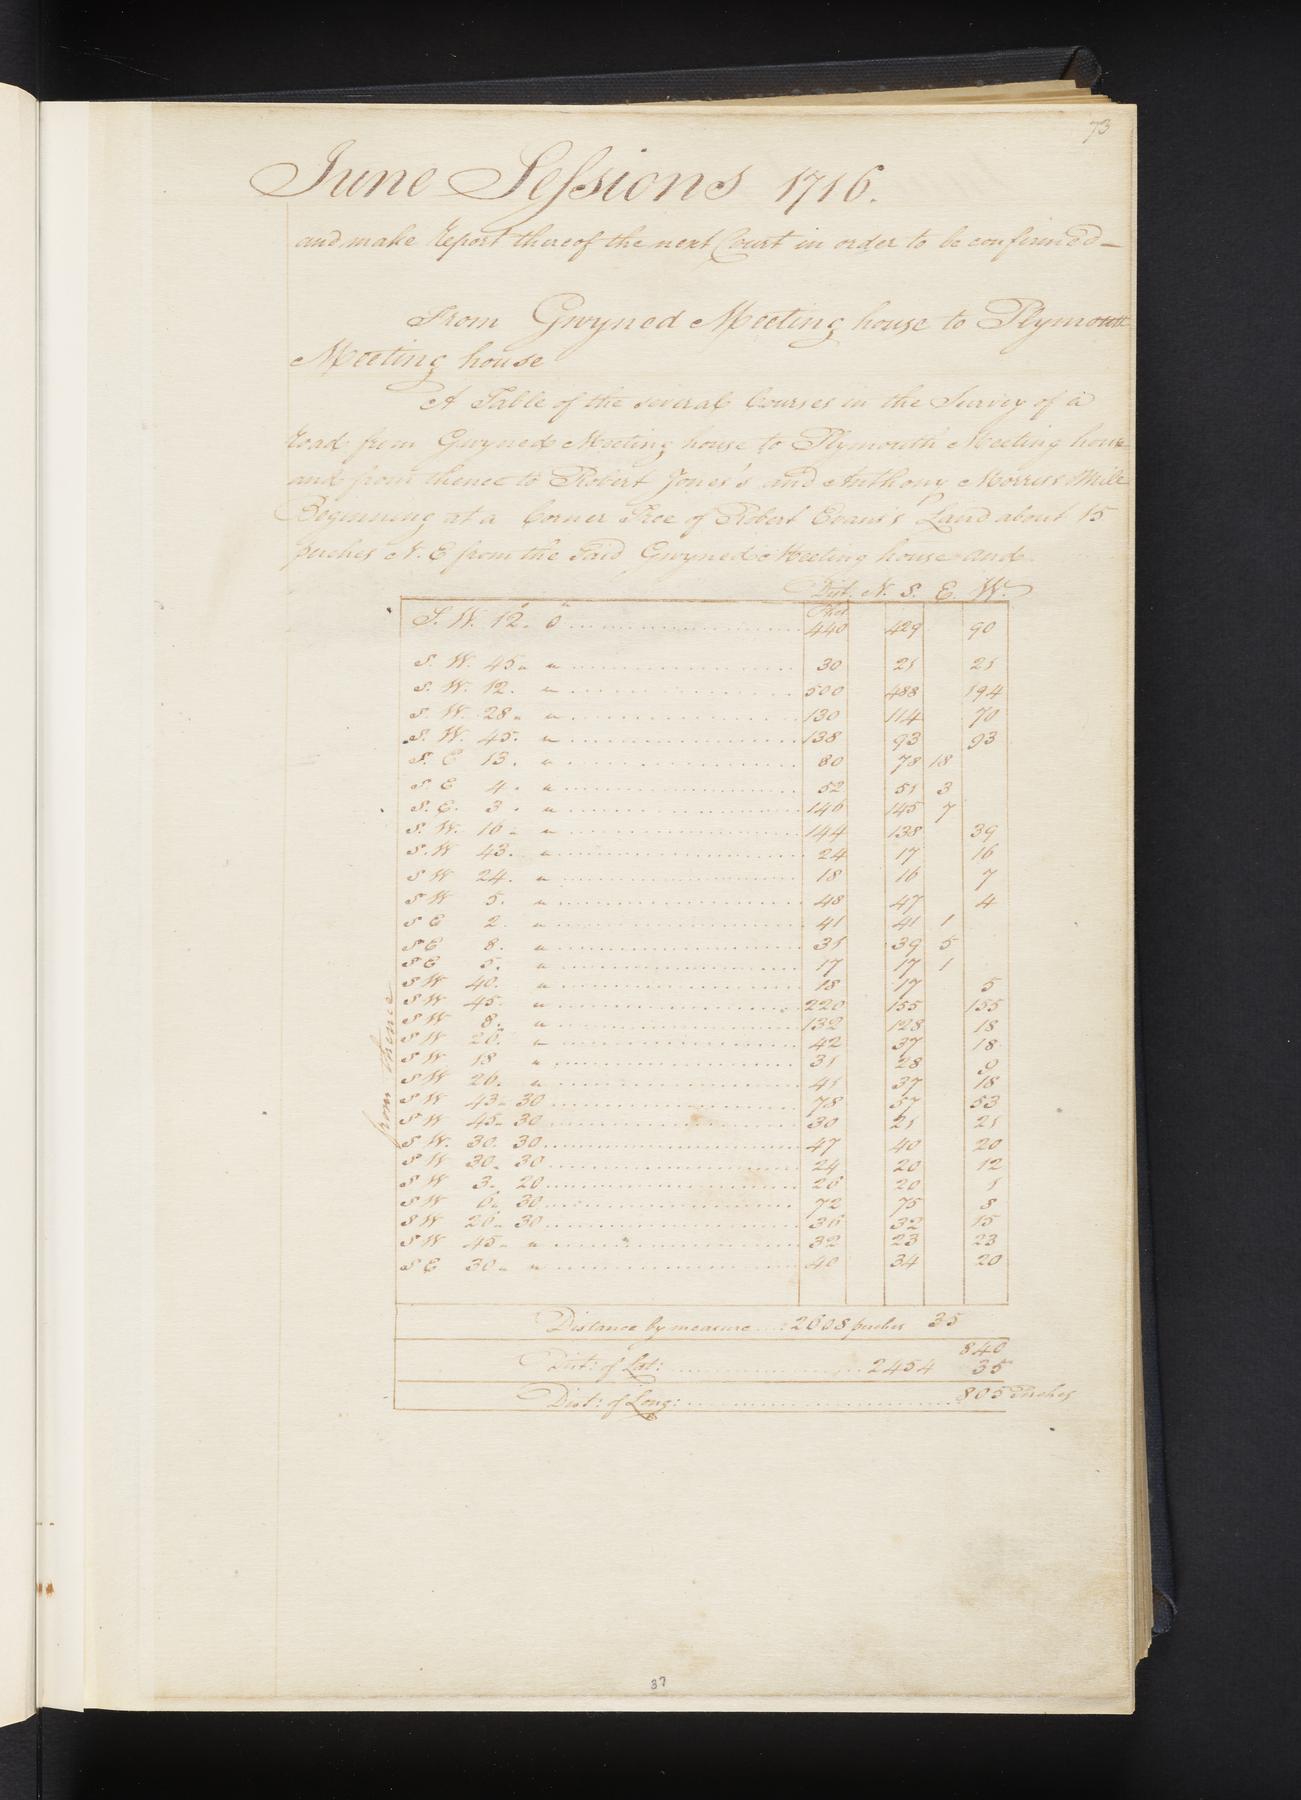 73
June Sessions 1716.
and make Report thereof the next Court in order to be confirmed—
From Gwyned Meeting house to Plymouth
Meeting house
A Table of the several Courses in the Survey of a
road from Gwyned Meeting house to Plymouth Meeting house
and from thence to Robert Jones's and Anthony Morriss Mill
Beginning at a Corner Tree of Robert Evans's Land about 15
perches N. E from the said Gwyned Meeting house and
Dist. N. S. E. W.
S. W. 12. 0 440 429 90
S. W. 45. " 30 21 21
S. W. 12. " 500 488 194
S. W. 28. " 130 114 70
S. W. 45. " 138 93 93
S. E 13. " 80 78 18
S. E 4. " 52 51 3
S. E. 3. " 146 145 7
S. W. 16. " 144 138 39
S. W 43. " 24 17 16
S W 24. " 18 16 7
S W 5. " 48 47 4
S E 2. " 41 41 1
S E 8. " 31 39 5
S E 5. " 17 17 1
S W 40. " 18 17 5
S W 45. " 220 155 155
S W 8. " 132 128 18
S W 26. " 42 37 18
S W 18 " 31 28 9
S W 26. " 41 37 18
S W 43. 30 78 57 53
S W 45. 30 30 21 21
S W. 30. 30 47 40 20
S W 30. 30 24 20 12
S W 3. 20 26 20 1
S W 6. 30 72 75 8
S W 26. 30 36 32 15
S W 45. " 32 23 23
S E 30. " 40 34 20
from thence
Distance by measure 2608 perches 35
840
Dist: of Lat: 2454 35
Dist: of Long: 805 Perches
37